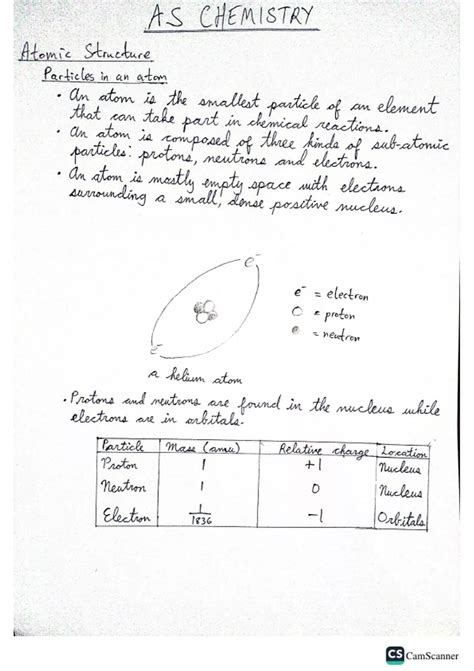 AS CHEMISTRY
Atomic Structure
Particles in an atom
• An atom is the smallest particle of an element
that can take part in chemical reactions.
• An atom is composed of three kinds of sub-atomic
particles: protons, neutrons and electrons.
• An atom is mostly empty space with electrons
surrounding a small, dense positive nucleus.
e⁻
e⁻ = electron
= proton
= neutron
e⁻
a helium atom
• Protons and neutrons are found in the nucleus while
electrons are in orbitals.
Particle Mass (amu) Relative charge Location
Proton 1 +1 Nucleus
Neutron 1 0 Nucleus
Electron 1/1836 -1 Orbitals
CS CamScanner